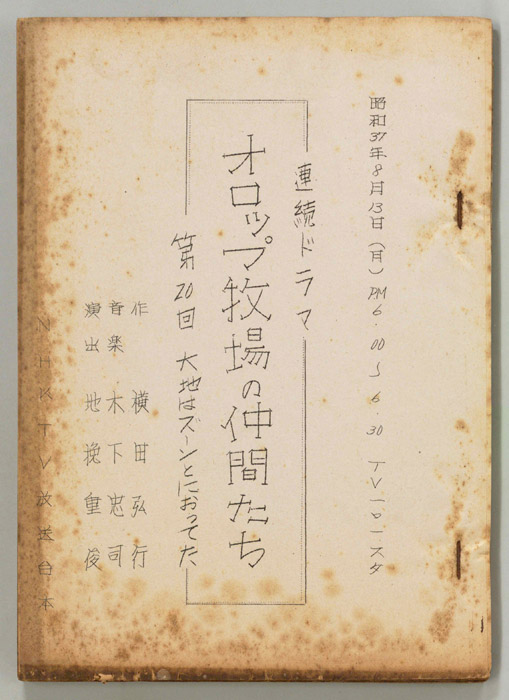 昭和37年8月13日(月) PM6.00〜6.30 TV-ロ-スタ
連続ドラマ
オロップ牧場の仲間たち
第20回 大地はズーンとにおってた
作 横田弘行
音楽 木下忠司
演出 地挽重俊
NHKTV放送台本